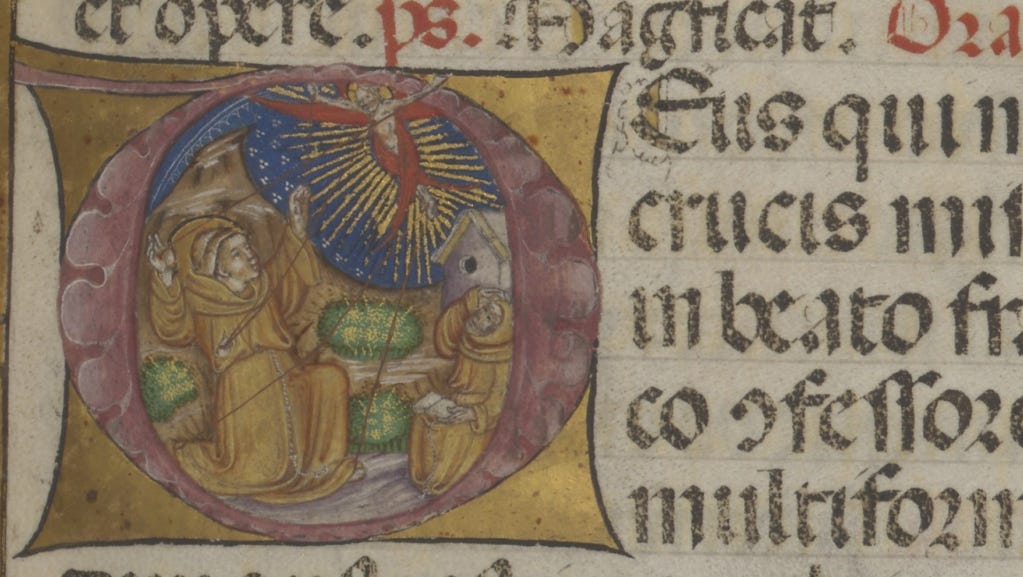 et opere. ps. Magnificat. Ora
Eus qui m
crucis mis
in beato fr
co ꝯfessore
multiform